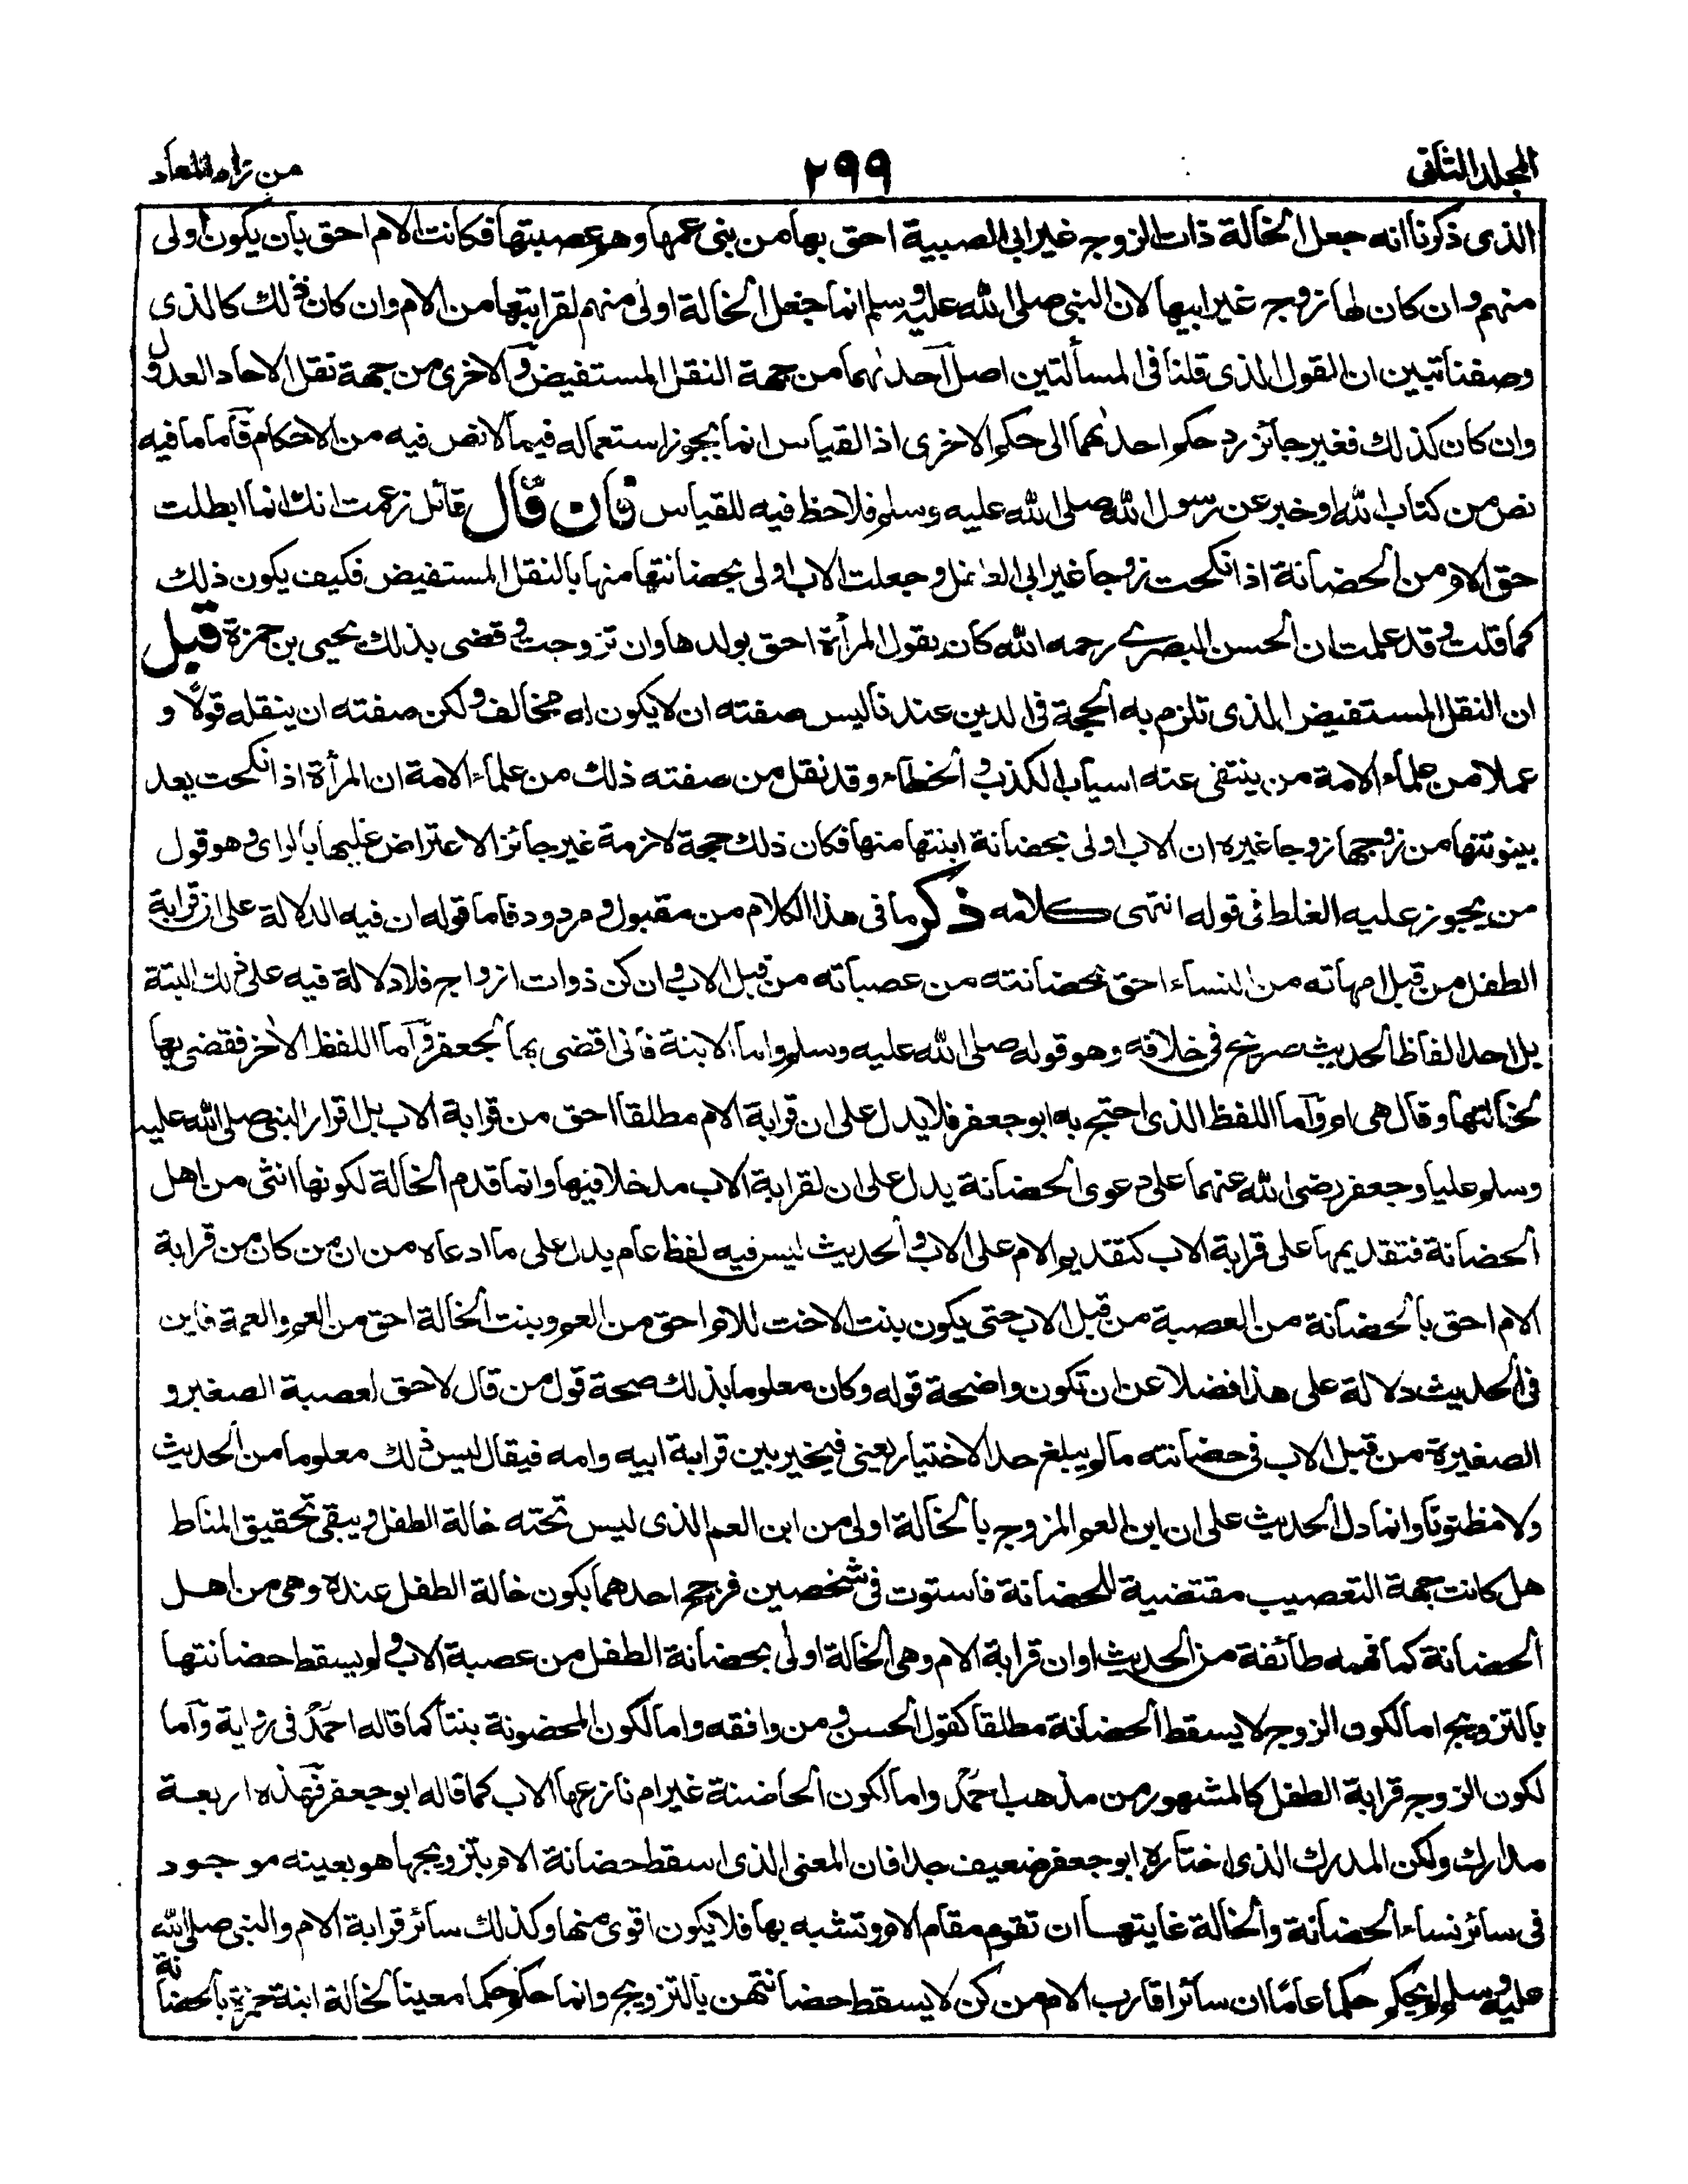 المجلد الثانى
٢٩٩
من زاد المعاد
الذى ذكرنا انه جعل الخالة ذات الزوج غير ابى الصبية احق بها من بنى عمها وهم عصبتها فكانت الام احق بان يكون اولى
منهم وان كان لها زوج غير ابيها لان النبى صلى الله عليه وسلم انما جعل الخالة اولى منهم لقرابتها من الام وان كان ذلك كالذى
وصفنا تبين ان القول الذى قلنا فى المسألتين اصل احدٰهما من جهة النقل المستفيض والاخرى من جهة نقل الاحاد العدول
وان كان كذلك فغير جائز رد حكم احدٰهما الى حكم الاخرى اذ القياس انما يجوز استعماله فيما لا نص فيه من الاحكام فاما ما فيه
نص من كتاب الله او خبر عن رسول الله صلى الله عليه وسلم فلا حظ فيه للقياس فان قال قائل زعمت انك انما ابطلت
حق الام من الحضانة اذا نكحت زوجا غير ابى الطفل وجعلت الاب اولى بحضانتها منها بالنقل المستفيض فكيف يكون ذلك
كما قلت وقد علمت ان الحسن البصرى رحمه الله كان يقول المرأة احق بولدها وان تزوجت وقضى بذلك يحيى بن حمزة قيل
ان النقل المستفيض الذى تلزم به الحجة فى الدين عندنا ليس صفته ان لا يكون له مخالف ولكن صفته ان ينقله قولا و
عملا من علماء الامة من ينتفى عنه اسباب الكذب والخطاء وقد نقل من صفته ذلك من علماء الامة ان المرأة اذا نكحت بعد
بينونتها من زوجها زوجا غيره ان الاب اولى بحضانة ابنتها منها فكان ذلك حجة لازمة غير جائز الاعتراض عليها بالراى وهو قول
من يجوز عليه الغلط فى قوله انتهى كلامه ذكر ما فى هذا الكلام من مقبول ومردود فاما قوله ان فيه الدلالة على ان قرابة
الطفل من قبل امهاته من النساء احق بحضانته من عصباته من قبل الاب وان كن ذوات ازواج فلا دلالة فيه على ذلك البتة
بل احد الفاظ الحديث صريح فى خلافه وهو قوله صلى الله عليه وسلم واما الابنة فانى اقضى بها لجعفر واما اللفظ الاخر فقضى بها
لخالتها وقال هى ام واما اللفظ الذى احتج به ابو جعفر فلا يدل على ان قرابة الام مطلقا احق من قرابة الاب بل اقرار النبى صلى الله عليه
وسلم عليا وجعفر رضى الله عنهما على دعوى الحضانة يدل على ان لقرابة الاب مدخلا فيها وانما قدم الخالة لكونها انثى من اهل
الحضانة فتقديمها على قرابة الاب كتقديم الام على الاب والحديث ليس فيه لفظ عام يدل على ما ادعاه من ان من كان من قرابة
الام احق بالحضانة من العصبة من قبل الاب حتى يكون بنت الاخت للام احق من العم وبنت الخالة احق من العم والعمة فاين
فى الحديث دلالة على هذا فضلا عن ان تكون واضحة قوله وكان معلوما بذلك صحة قول من قال لا حق لعصبة الصغير و
الصغيرة من قبل الاب فى حضانته ما لم يبلغ حد الاختيار يعنى فيخير بين قرابة ابيه وامه فيقال ليس ذلك معلوما من الحديث
ولا مظنونا وانما دل الحديث على ان ابن العم المزوج بالخالة اولى من ابن العم الذى ليس تحته خالة الطفل ويبقى تحقيق المناط
هل كانت جهة التعصيب مقتضية للحضانة فاستوت فى شخصين فرجح احدهما بكون خالة الطفل عنده وهى من اهل
الحضانة كما فهمه طائفة من الحديث او ان قرابة الام وهى الخالة اولى بحضانة الطفل من عصبة الاب ولم يسقط حضانتها
بالتزويج اما لكون الزوج لا يسقط الحضانة مطلقا كقول الحسن ومن وافقه واما لكون المحضونة بنتا كما قاله احمد فى رواية واما
لكون الزوج قرابة الطفل كالمشهور من مذهب احمد واما لكون الحاضنة غير ام نازعها الاب كما قاله ابو جعفر فهذه اربعة
مدارك ولكن المدرك الذى اختاره ابو جعفر ضعيف جدا فان المعنى الذى اسقط حضانة الام بتزويجها هو بعينه موجود
فى سائر نساء الحضانة والخالة غايتها ان تقوم مقام الام وتشبه بها فلا يكون اقوى منها وكذلك سائر قرابة الام والنبى صلى الله
عليه وسلم لم يحكم حكما عاما ان سائر اقارب الام من كن لا يسقط حضانتهن بالتزويج وانما حكم حكما معينا لخالة ابنة حمزة بالحضانة